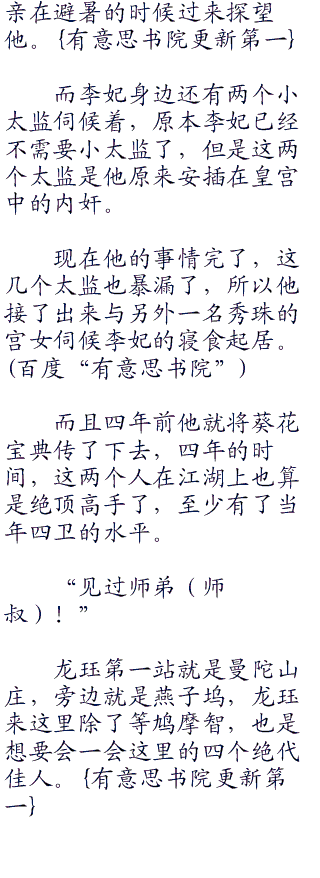 亲在避暑的时候过来探望
他。{有意思书院更新第一}
而李妃身边还有两个小
太监伺候着，原本李妃已经
不需要小太监了，但是这两
个太监是他原来安插在皇宫
中的内奸。
现在他的事情完了，这
几个太监也暴漏了，所以他
接了出来与另外一名秀珠的
宫女伺候李妃的寝食起居。
(百度“有意思书院”)
而且四年前他就将葵花
宝典传了下去，四年的时
间，这两个人在江湖上也算
是绝顶高手了，至少有了当
年四卫的水平。
“见过师弟（师
叔）！”
龙珏第一站就是曼陀山
庄，旁边就是燕子坞，龙珏
来这里除了等鸠摩智，也是
想要会一会这里的四个绝代
佳人。{有意思书院更新第
一}